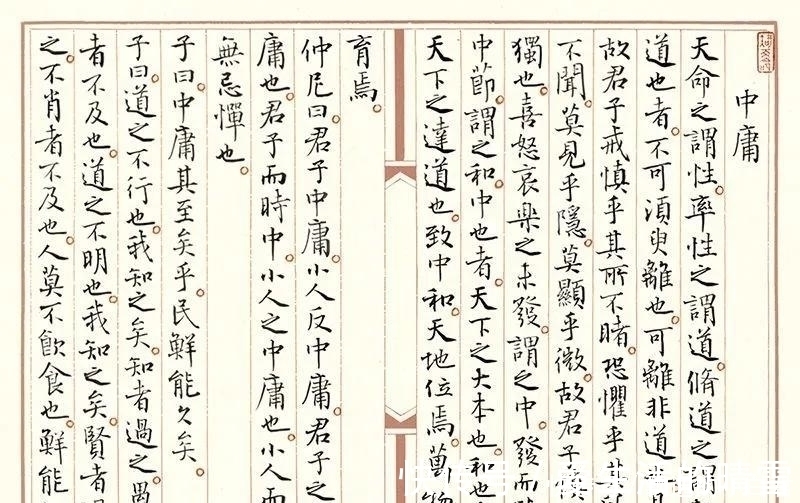 中庸
天命之謂性。率性之謂道。脩道之謂
道也者。不可須臾離也。可離非道
故君子戒慎乎其所不睹。恐懼乎其
不聞。莫見乎隱。莫顯乎微。故君子
獨也。喜怒哀樂之未發。謂之中。發而
中節。謂之和。中也者。天下之大本也。和也
天下之達道也。致中和。天地位焉。萬物
育焉。
仲尼曰。君子中庸。小人反中庸。君子之
庸也。君子而時中。小人之中庸也。小人而
無忌憚也。
子曰。中庸其至矣乎。民鮮能久矣。
子曰。道之不行也。我知之矣。知者過之。愚
者不及也。道之不明也。我知之矣。賢者
之。不肖者不及也。人莫不飲食也。鮮能